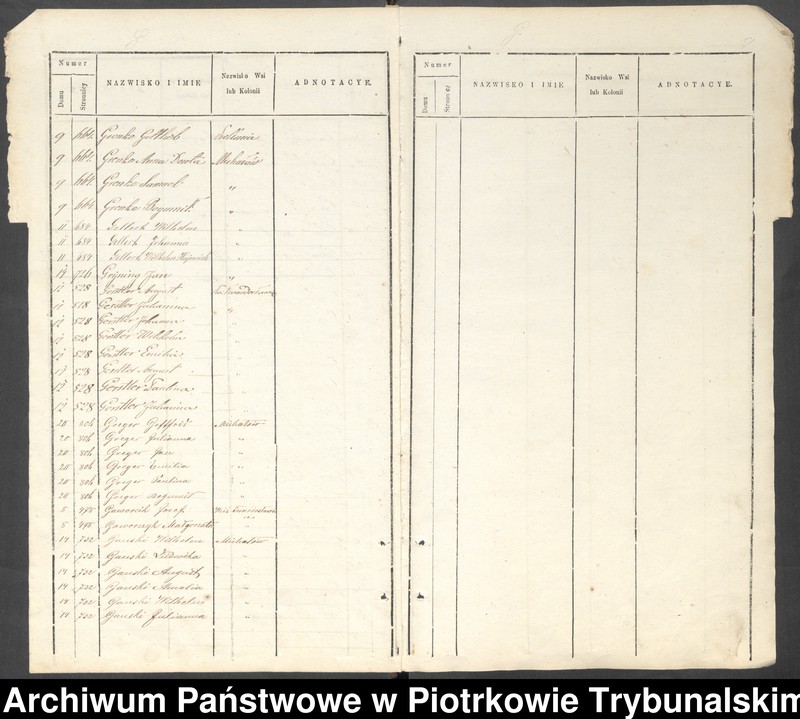 Numer
Domu Stronnicy NAZWISKO I IMIE Nazwisko Wsi lub Kolonii ADNOTACYE.
9 664 Grenke Gottlieb
9 664 Grenke Anna Dorota Michałów
9 664 Grenke Samuel "
9 664 Grenke Bogumił "
11 684 Gellert Wilhelm "
11 684 Gellert Johanna "
11 684 Gellert Wilhelm "
14 726 Jan "
12 528 Gerstler August
12 528 Gerstler Julianna "
12 528 Gerstler Johanna "
12 528 Gerstler "
12 528 Gerstler Emilia "
12 528 Gerstler August "
12 528 Gerstler Paulina "
12 528 Gerstler Julianna "
20 806 Greger Gottfried Michałów
20 806 Greger Julianna "
20 806 Greger Jan "
20 806 Greger Emilia "
20 806 Greger Paulina "
20 806 Greger Bogumił "
5 495 Józef
5 495 Gaworczyk Małgorzata "
14 732 Ganski Wilhelm Michałów
14 732 Ganski Ludwika "
14 732 Ganski August "
14 732 Ganski Amalia "
14 732 Ganski Wilhelm "
14 732 Ganski Julianna "
Numer
Domu Stronnicy NAZWISKO I IMIE Nazwisko Wsi lub Kolonii ADNOTACYE.
Archiwum Państwowe w Piotrkowie Trybunalskim